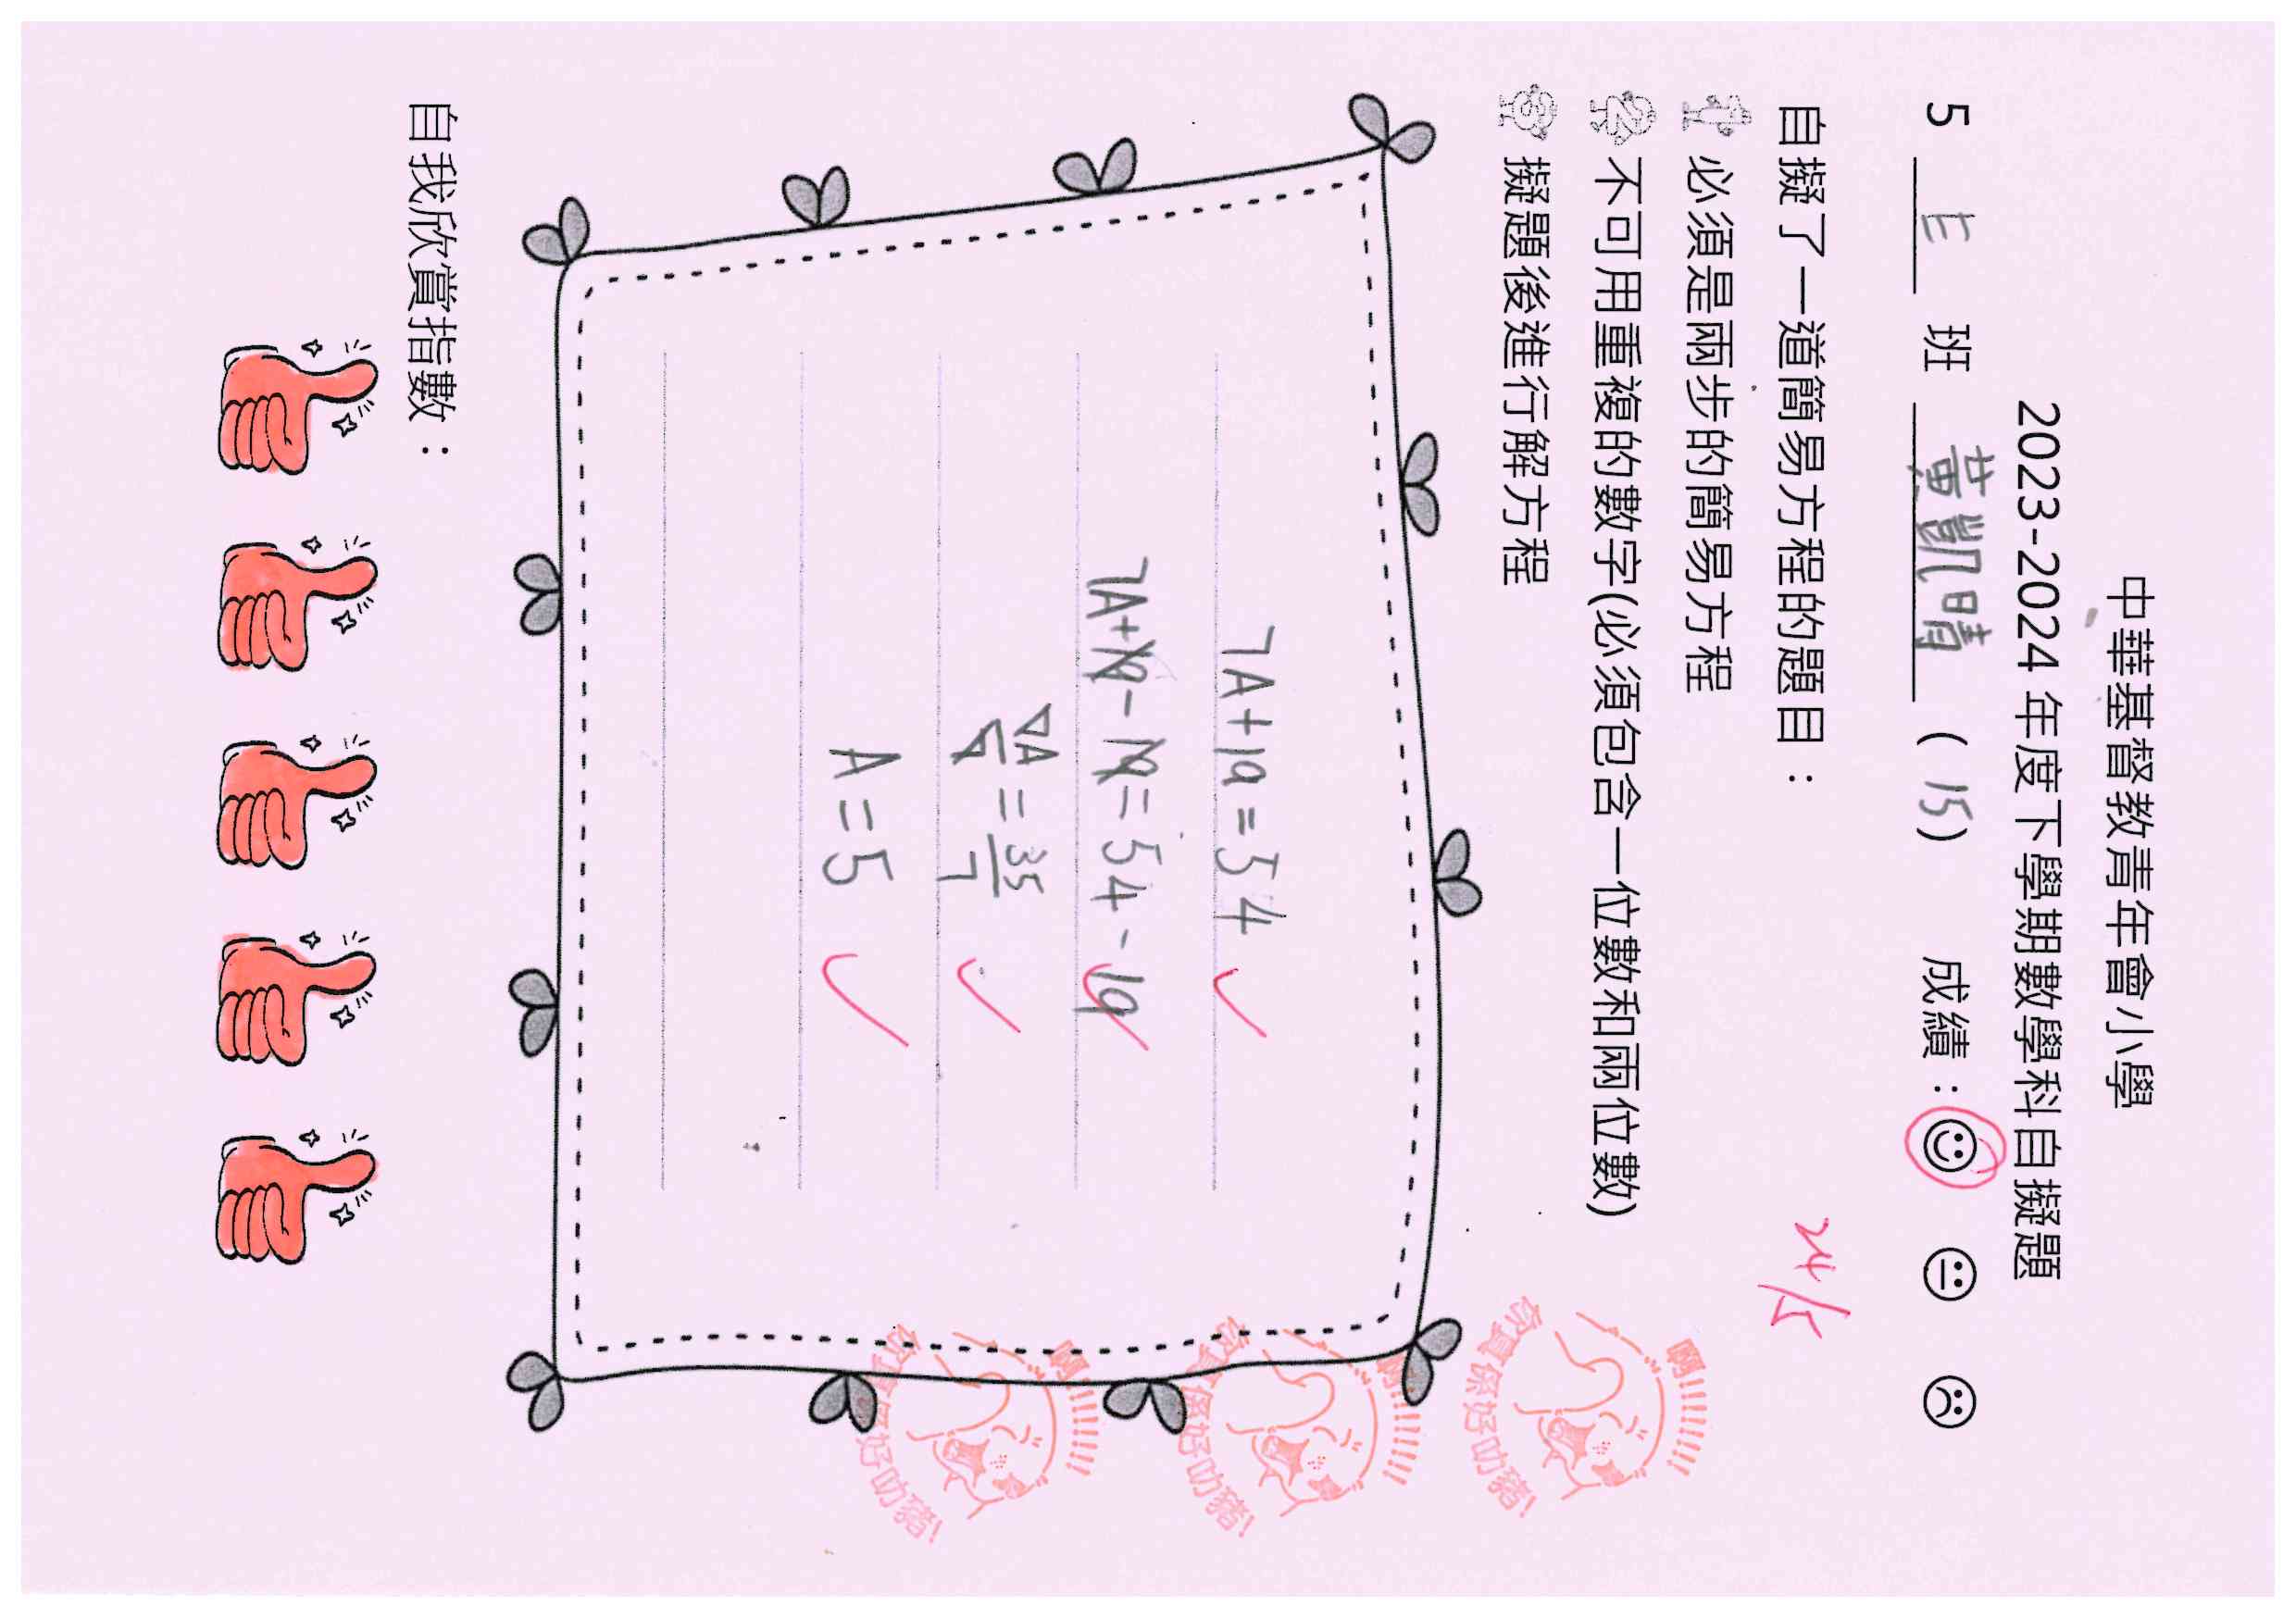 中華基督教青年會小學
2023-2024 年度下學期數學科自擬題
5 E 班 黃凱晴 ( 15 ) 成績：
自擬了一道簡易方程的題目：
24/5
1 必須是兩步的簡易方程
2 不可用重複的數字(必須包含一位數和兩位數)
3 擬題後進行解方程
7A+19=54
7A+19-19=54-19
7A/7=35/7
A=5
自我欣賞指數：
啊!!!!!!!!
你真係好叻豬!
啊!!!!!!!!
你真係好叻豬!
啊!!!!!!!!
你真係好叻豬!